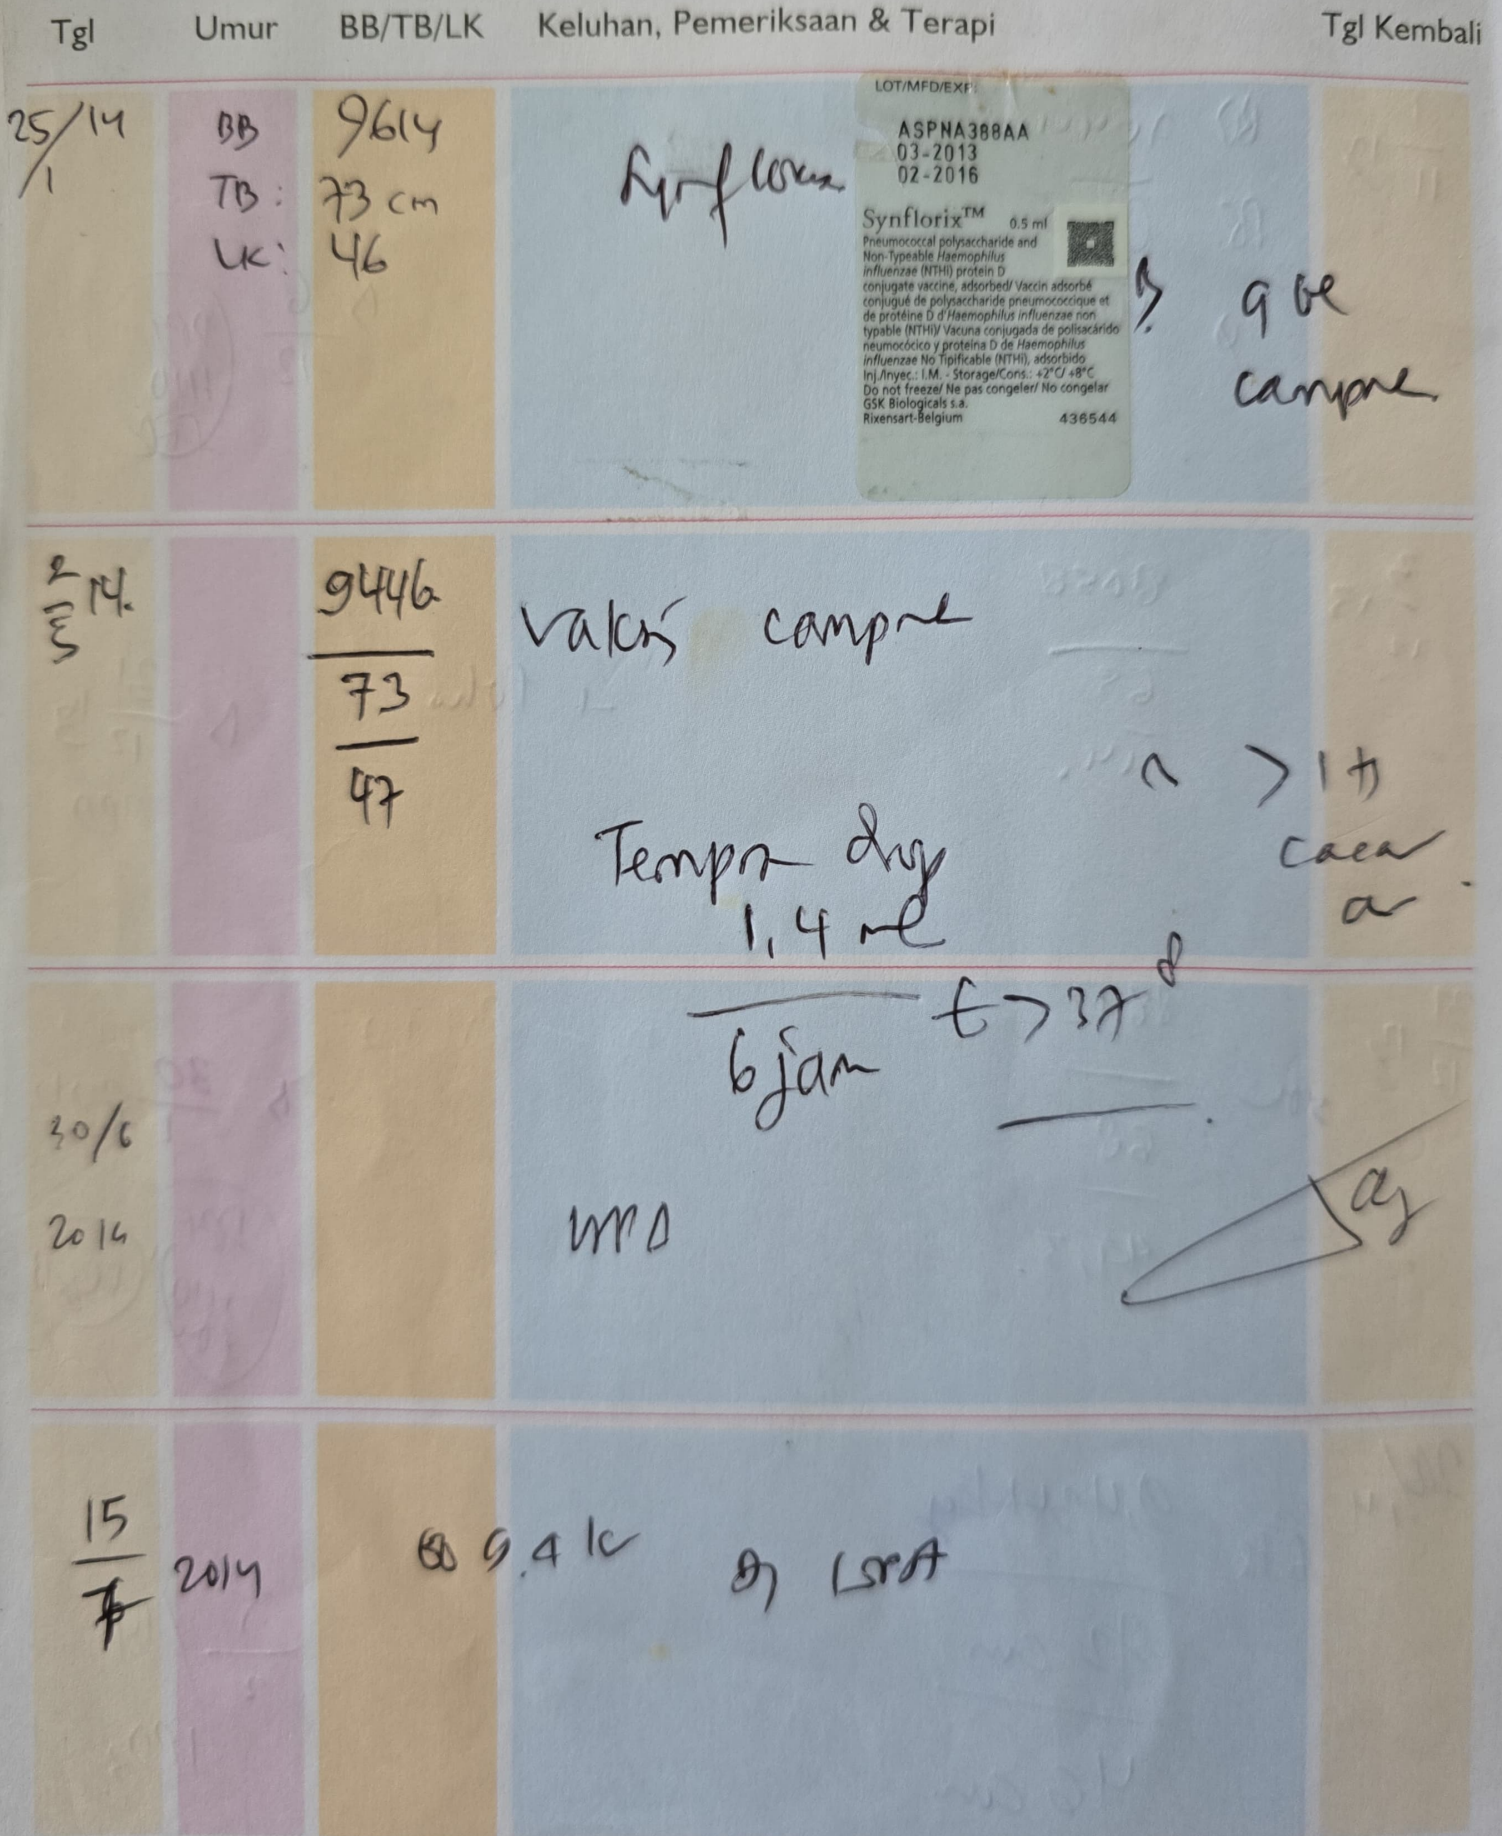 Tgl Umur BB/TB/LK Keluhan, Pemeriksaan & Terapi Tgl Kembali
25/1 14 BB 9614
TB: 73 cm
LK: 46
Synflorix
LOT/MFD/EXP:
ASPNA388AA
03-2013
02-2016
Synflorix™ 0.5 ml
Pneumococcal polysaccharide and
Non-Typeable Haemophilus
influenzae (NTHi) protein D
conjugate vaccine, adsorbed/ Vaccin adsorbé
conjugué de polysaccharide pneumococcique et
de protéine D d'Haemophilus influenzae non
typable (NTHi)/ Vacuna conjugada de polisacárido
neumocócico y proteína D de Haemophilus
influenzae No Tipificable (NTHi), adsorbido
Inj./Inyec.: I.M. - Storage/Cons.: +2°C/ +8°C
Do not freeze/ Ne pas congeler/ No congelar
GSK Biologicals s.a.
Rixensart-Belgium 436544
9 bl
campak
14 9446
73
47
vaksin campak
> 1 th
cacar
air
Tempra drop
1,4 ml
6 jam t > 37⁸
30/6
2014
15
7 2014 BB 9.4 k ISPA